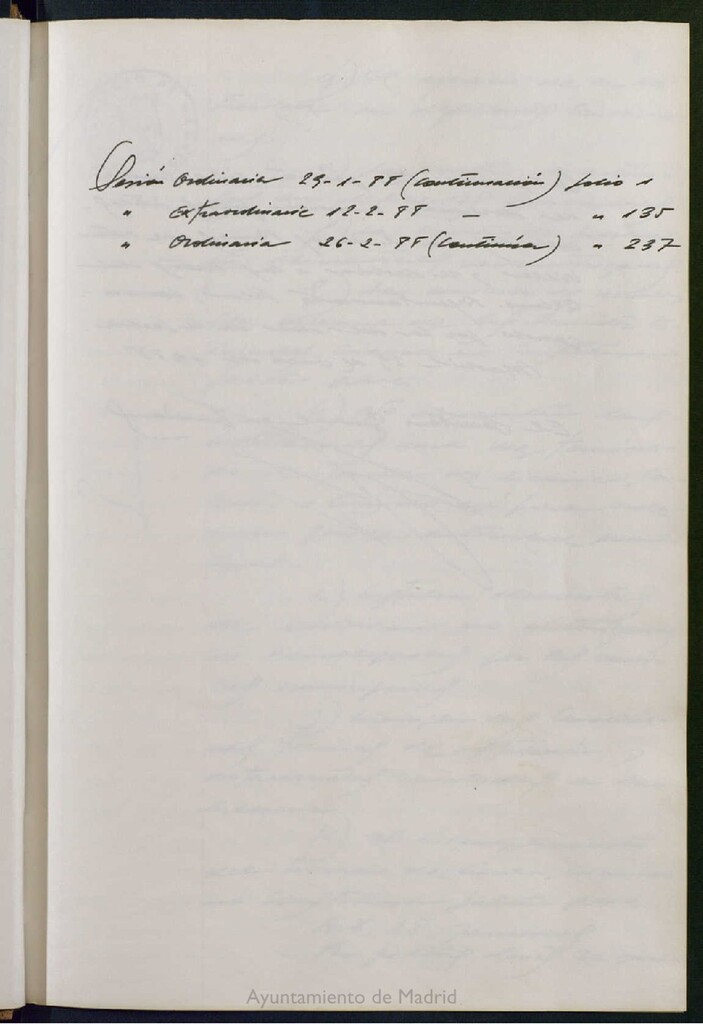 Sesión Ordinaria 29-1-88 (Continuación) folio 1
" Extraordinaria 12-2-88 — " 135
" Ordinaria 26-2-88 (Continúa) " 237
Ayuntamiento de Madrid